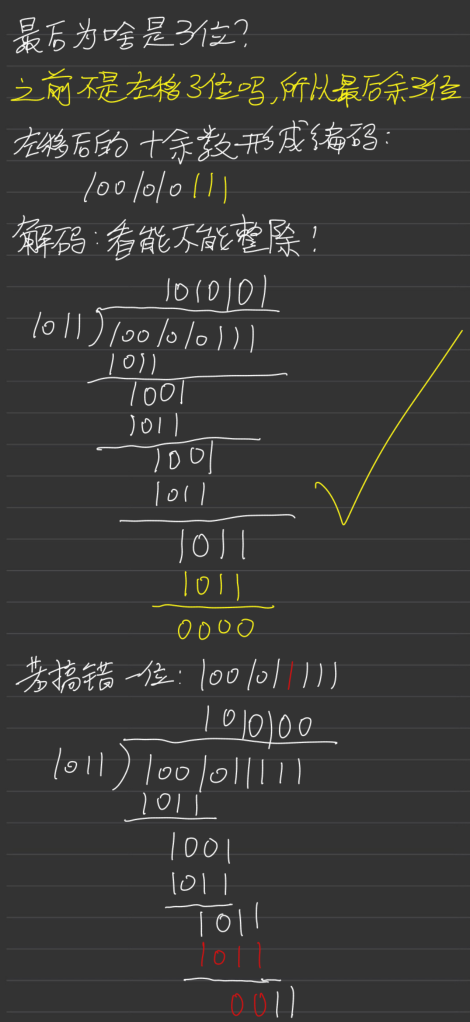 最后为啥是3位?
之前不是左移3位吗,所以最后余3位
左移后的十余数形成编码:
1001010111
解码:看能不能整除!
1010101
1011)1001010111
1011
1001
1011
1001
1011
1011
1011
0000
若搞错一位:1001011111
1010100
1011)1001011111
1011
1001
1011
1011
1011
0011